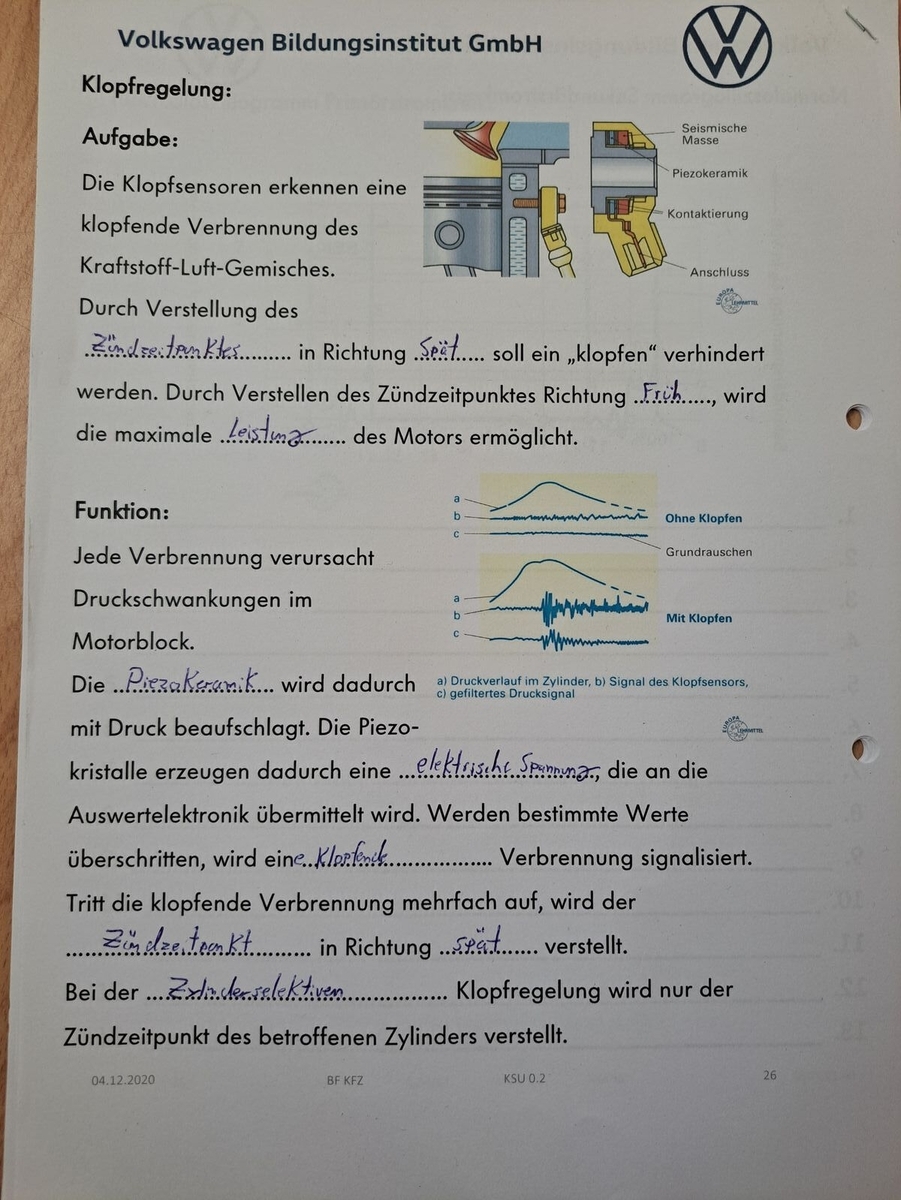 Volkswagen Bildungsinstitut GmbH
Klopfregelung:
Aufgabe:
Die Klopfsensoren erkennen eine
klopfende Verbrennung des
Kraftstoff-Luft-Gemisches.
Durch Verstellung des
Seismische
Masse
Piezokeramik
Kontaktierung
Anschluss
EUROPA
LEHRMITTEL
Zündzeitpunktes in Richtung Spät soll ein „klopfen“ verhindert
werden. Durch Verstellen des Zündzeitpunktes Richtung Früh, wird
die maximale Leistung des Motors ermöglicht.
Funktion:
Jede Verbrennung verursacht
Druckschwankungen im
Motorblock.
a
b
c
Ohne Klopfen
Grundrauschen
a
b
c
Mit Klopfen
a) Druckverlauf im Zylinder, b) Signal des Klopfsensors,
c) gefiltertes Drucksignal
EUROPA
LEHRMITTEL
Die Piezokeramik wird dadurch
mit Druck beaufschlagt. Die Piezo-
kristalle erzeugen dadurch eine elektrische Spannung, die an die
Auswertelektronik übermittelt wird. Werden bestimmte Werte
überschritten, wird eine Klopfende Verbrennung signalisiert.
Tritt die klopfende Verbrennung mehrfach auf, wird der
Zündzeitpunkt in Richtung spät verstellt.
Bei der Zylinderselektiven Klopfregelung wird nur der
Zündzeitpunkt des betroffenen Zylinders verstellt.
04.12.2020 BF KFZ KSU 0.2 26